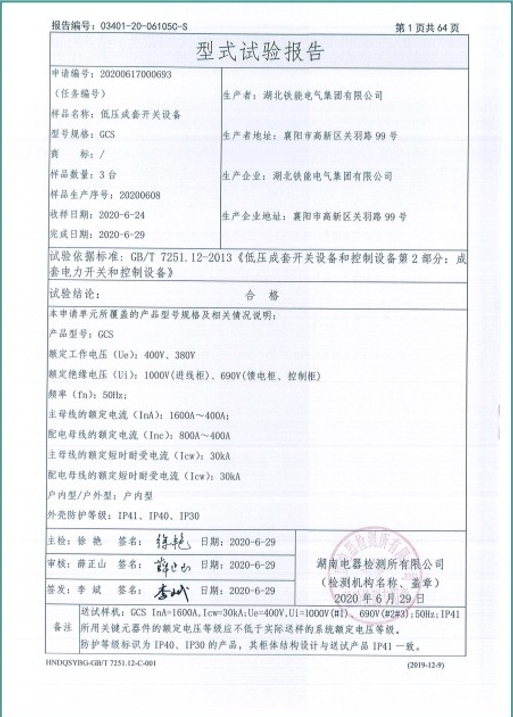 报告编号：03401-20-06105C-S
第 1 页共 64 页
型式试验报告
申请编号：20200617000693
（任务编号）
样品名称：低压成套开关设备
型号规格：GCS
商 标：/
样品数量：3 台
样品生产序号：20200608
收样日期：2020-6-24
完成日期：2020-6-29
生产者：湖北铁能电气集团有限公司
生产者地址：襄阳市高新区关羽路 99 号
生产企业：湖北铁能电气集团有限公司
生产企业地址：襄阳市高新区关羽路 99 号
试验依据标准：GB/T 7251.12-2013《低压成套开关设备和控制设备第 2 部分：成
套电力开关和控制设备》
试验结论： 合 格
本申请单元所覆盖的产品型号规格及相关情况说明：
产品型号：GCS
额定工作电压（Ue）：400V、380V
额定绝缘电压（Ui）：1000V(进线柜)、690V(馈电柜、控制柜)
频率（fn）：50Hz；
主母线的额定电流（InA）：1600A～400A；
配电母线的额定电流（Inc）：800A～400A
主母线的额定短时耐受电流（Icw）：30kA
配电母线的额定短时耐受电流（Icw）：30kA
户内型/户外型：户内型
外壳防护等级：IP41、IP40、IP30
主检：徐 艳 签名：徐艳 日期：2020-6-29
审核：薛正山 签名：薛正山 日期：2020-6-29
签发：李 斌 签名：李斌 日期：2020-6-29
湖南电器检测所有限公司
（检测机构名称、盖章）
2020 年 6 月 29 日
备注
送试样机：GCS InA=1600A,Icw=30kA;Ue=400V,Ui=1000V(#1)、690V(#2#3);50Hz;IP41
所用关键元器件的额定电压等级应不低于实际送样的系统额定电压等级。
防护等级标识为 IP40、IP30 的产品，其柜体结构设计与送试产品 IP41 一致。
HNDQSYBG-GB/T 7251.12-C-001
(2019-12-9)